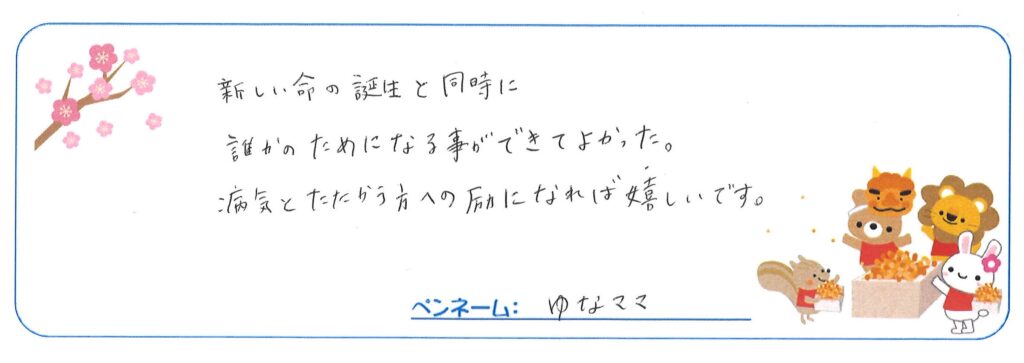 新しい命の誕生と同時に
誰かのためになる事ができてよかった。
病気とたたかう方への励になれば嬉しいです。
ペンネーム: ゆなママ